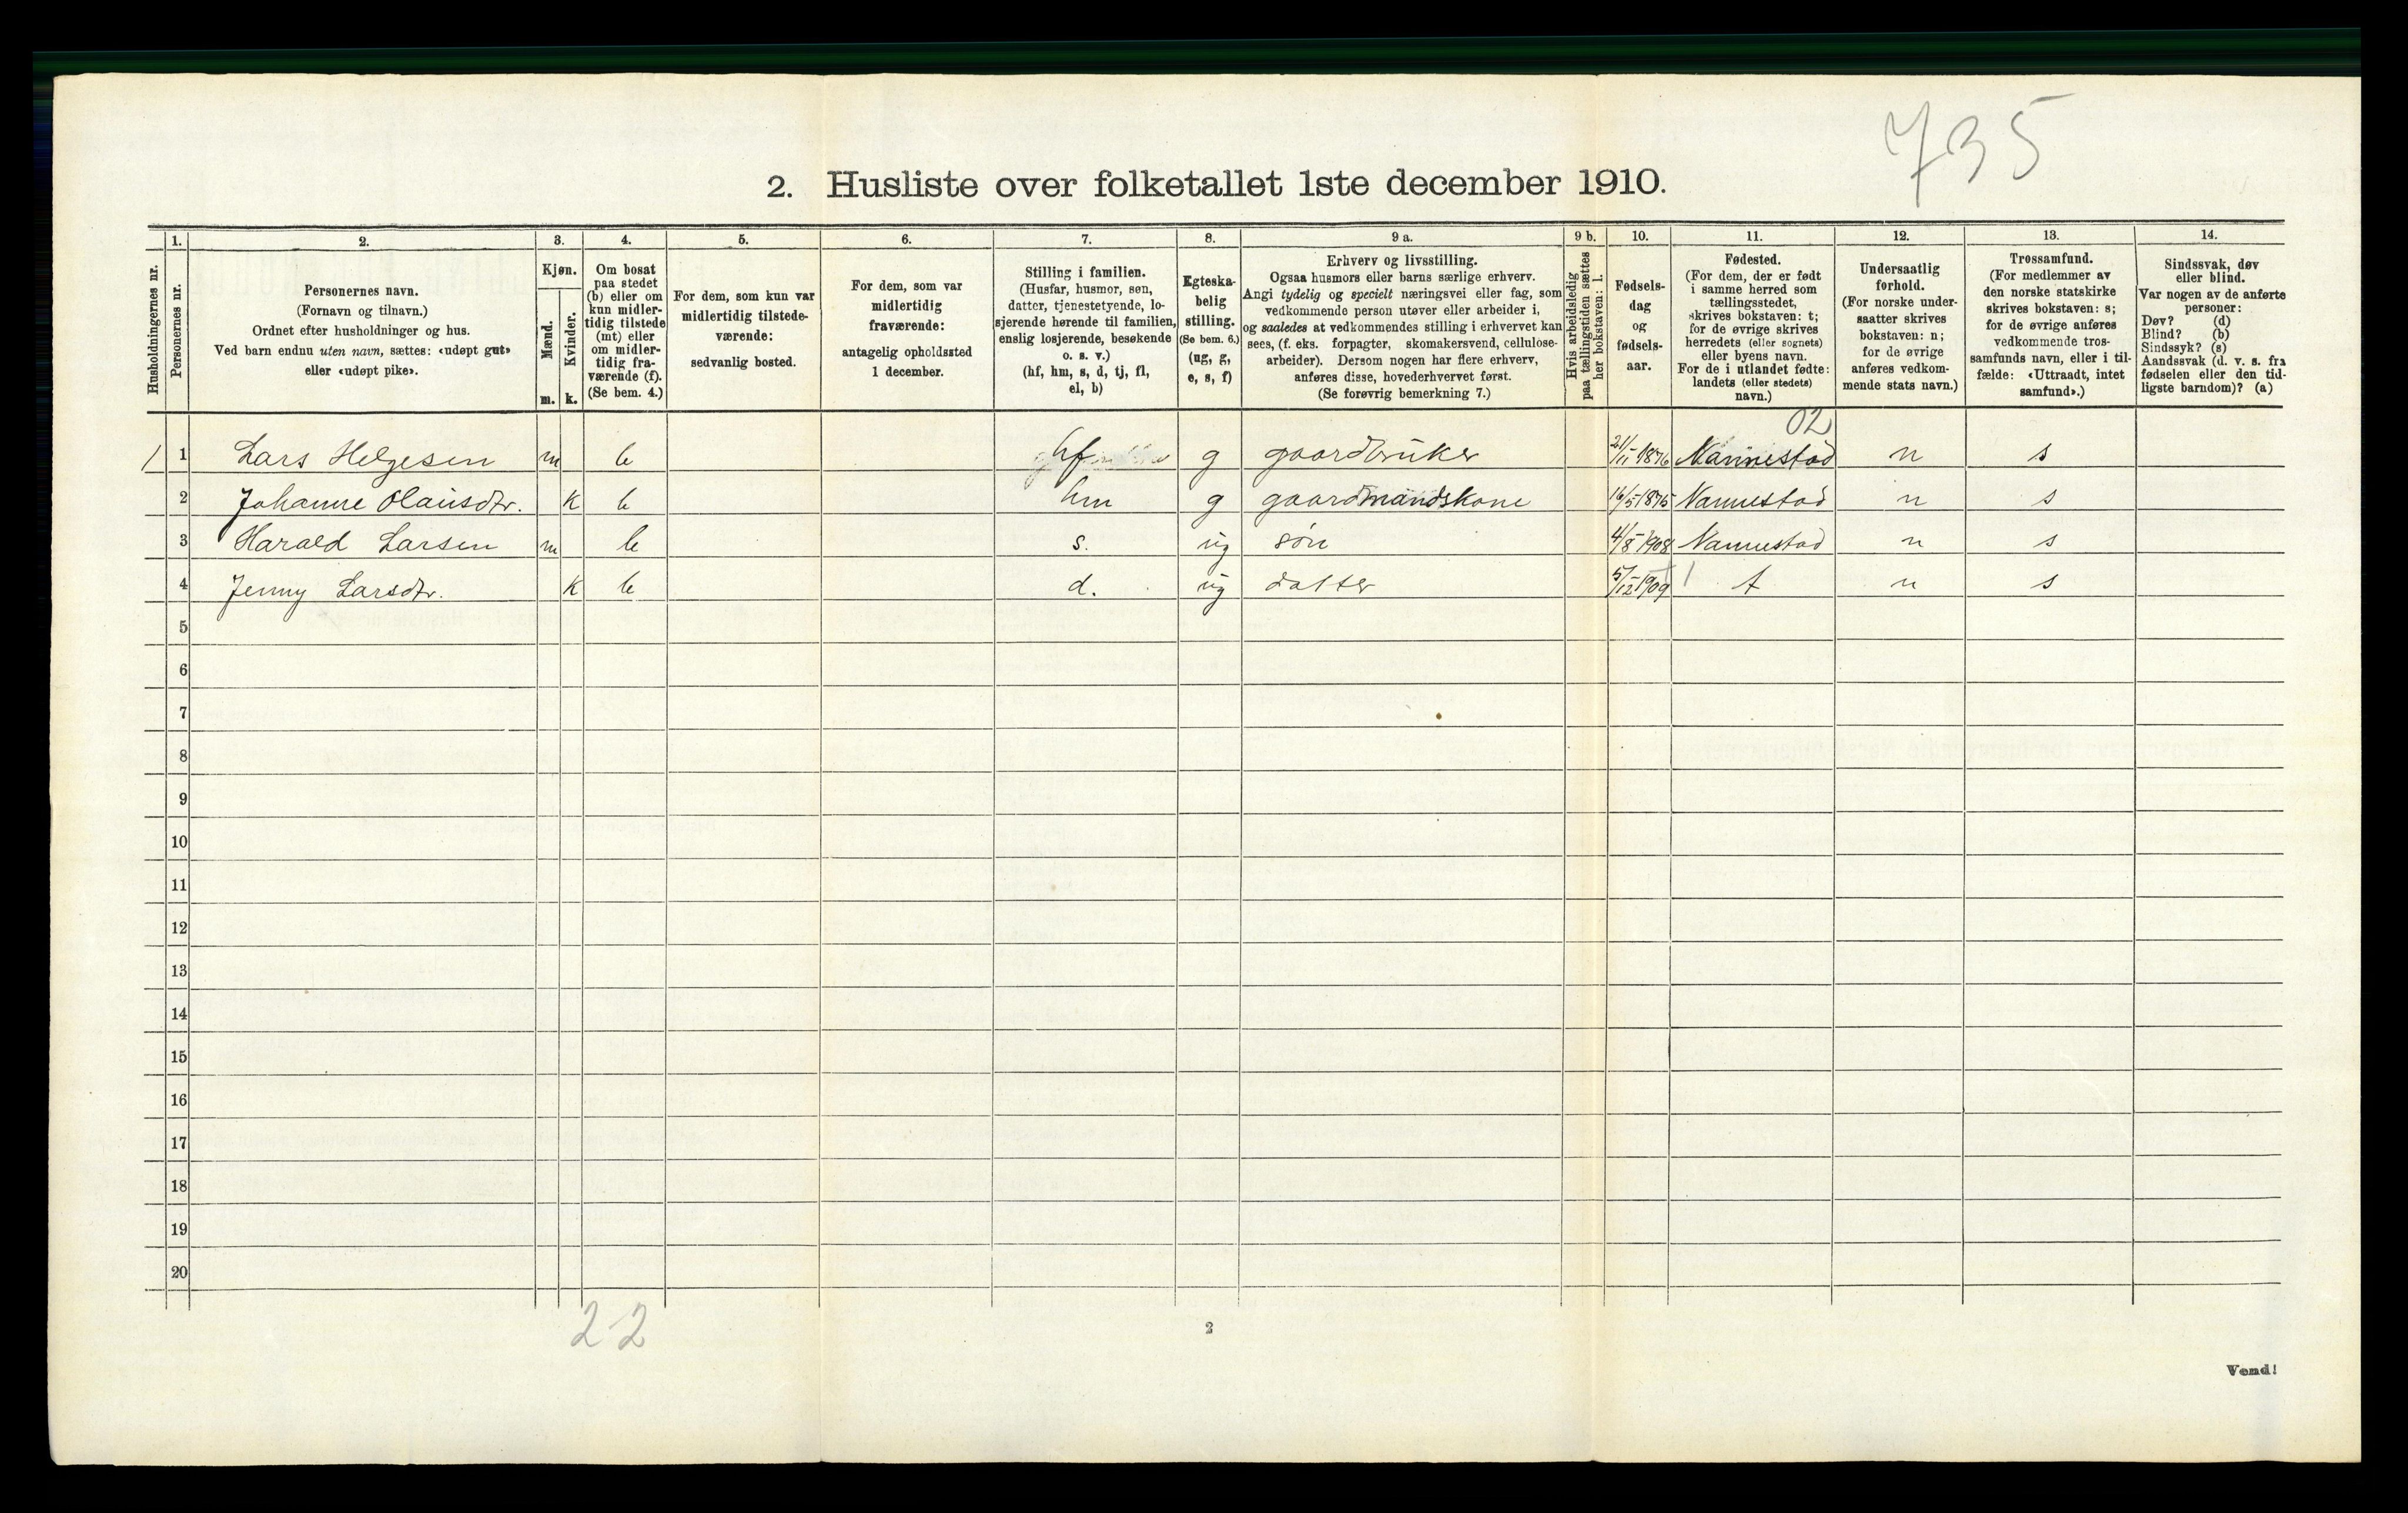 735
2. Husliste over folketallet 1ste december 1910.
Husholdningernes nr.
1.
Personernes nr.
2.
Personernes navn.
(Fornavn og tilnavn.)
Ordnet efter husholdninger og hus.
Ved barn endnu uten navn, sættes: «udøpt gut»
eller «udøpt pike».
3.
Kjøn.
Mænd.
Kvinder.
m. k.
4.
Om bosat
paa stedet
(b) eller om
kun midler-
tidig tilstede
(mt) eller
om midler-
tidig fra-
værende (f).
(Se bem. 4.)
5.
For dem, som kun var
midlertidig tilstede-
værende:
sedvanlig bosted.
6.
For dem, som var
midlertidig
fraværende:
antagelig opholdssted
1 december.
7.
Stilling i familien.
(Husfar, husmor, søn,
datter, tjenestetyende, lo-
sjerende hørende til familien,
enslig losjerende, besøkende
o. s. v.)
(hf, hm, s, d, tj, fl,
el, b)
8.
Egteska-
belig
stilling.
(Se bem. 6.)
(ug, g,
e, s, f)
9 a.
Erhverv og livsstilling.
Ogsaa husmors eller barns særlige erhverv.
Angi tydelig og specielt næringsvei eller fag, som
vedkommende person utøver eller arbeider i,
og saaledes at vedkommendes stilling i erhvervet kan
sees, (f. eks. forpagter, skomakersvend, cellulose-
arbeider). Dersom nogen har flere erhverv,
anføres disse, hovederhvervet først.
(Se forøvrig bemerkning 7.)
9 b.
Hvis arbeidsledig
paa tællingstiden sættes
her bokstaven: l.
10.
Fødsels-
dag
og
fødsels-
aar.
11.
Fødested.
(For dem, der er født
i samme herred som
tællingsstedet,
skrives bokstaven: t;
for de øvrige skrives
herredets (eller sognets)
eller byens navn.
For de i utlandet fødte:
landets (eller stedets)
navn.)
12.
Undersaatlig
forhold.
(For norske under-
saatter skrives
bokstaven: n;
for de øvrige
anføres vedkom-
mende stats navn.)
13.
Trossamfund.
(For medlemmer av
den norske statskirke
skrives bokstaven: s;
for de øvrige anføres
vedkommende tros-
samfunds navn, eller i til-
fælde: «Uttraadt, intet
samfund».)
14.
Sindssvak, døv
eller blind.
Var nogen av de anførte
personer:
Døv? (d)
Blind? (b)
Sindssyk? (s)
Aandssvak (d. v. s. fra
fødselen eller den tid-
ligste barndom)? (a)
02
1 1 Lars Helgesen m b hf g gaardbruker 21/11 1876 Nannestad n s
2 Johanne Olausdtr. k b hm g gaardmandskone 16/5 1875 Nannestad n s
3 Harald Larsen m b s. ug søn 4/8 1908 Nannestad n s
4 Jenny Larsdtr. k b d. ug datter 5/12 1909 t n s
5
6
7
8
9
10
11
12
13
14
15
16
17
18
19
20
22
2
Vend!